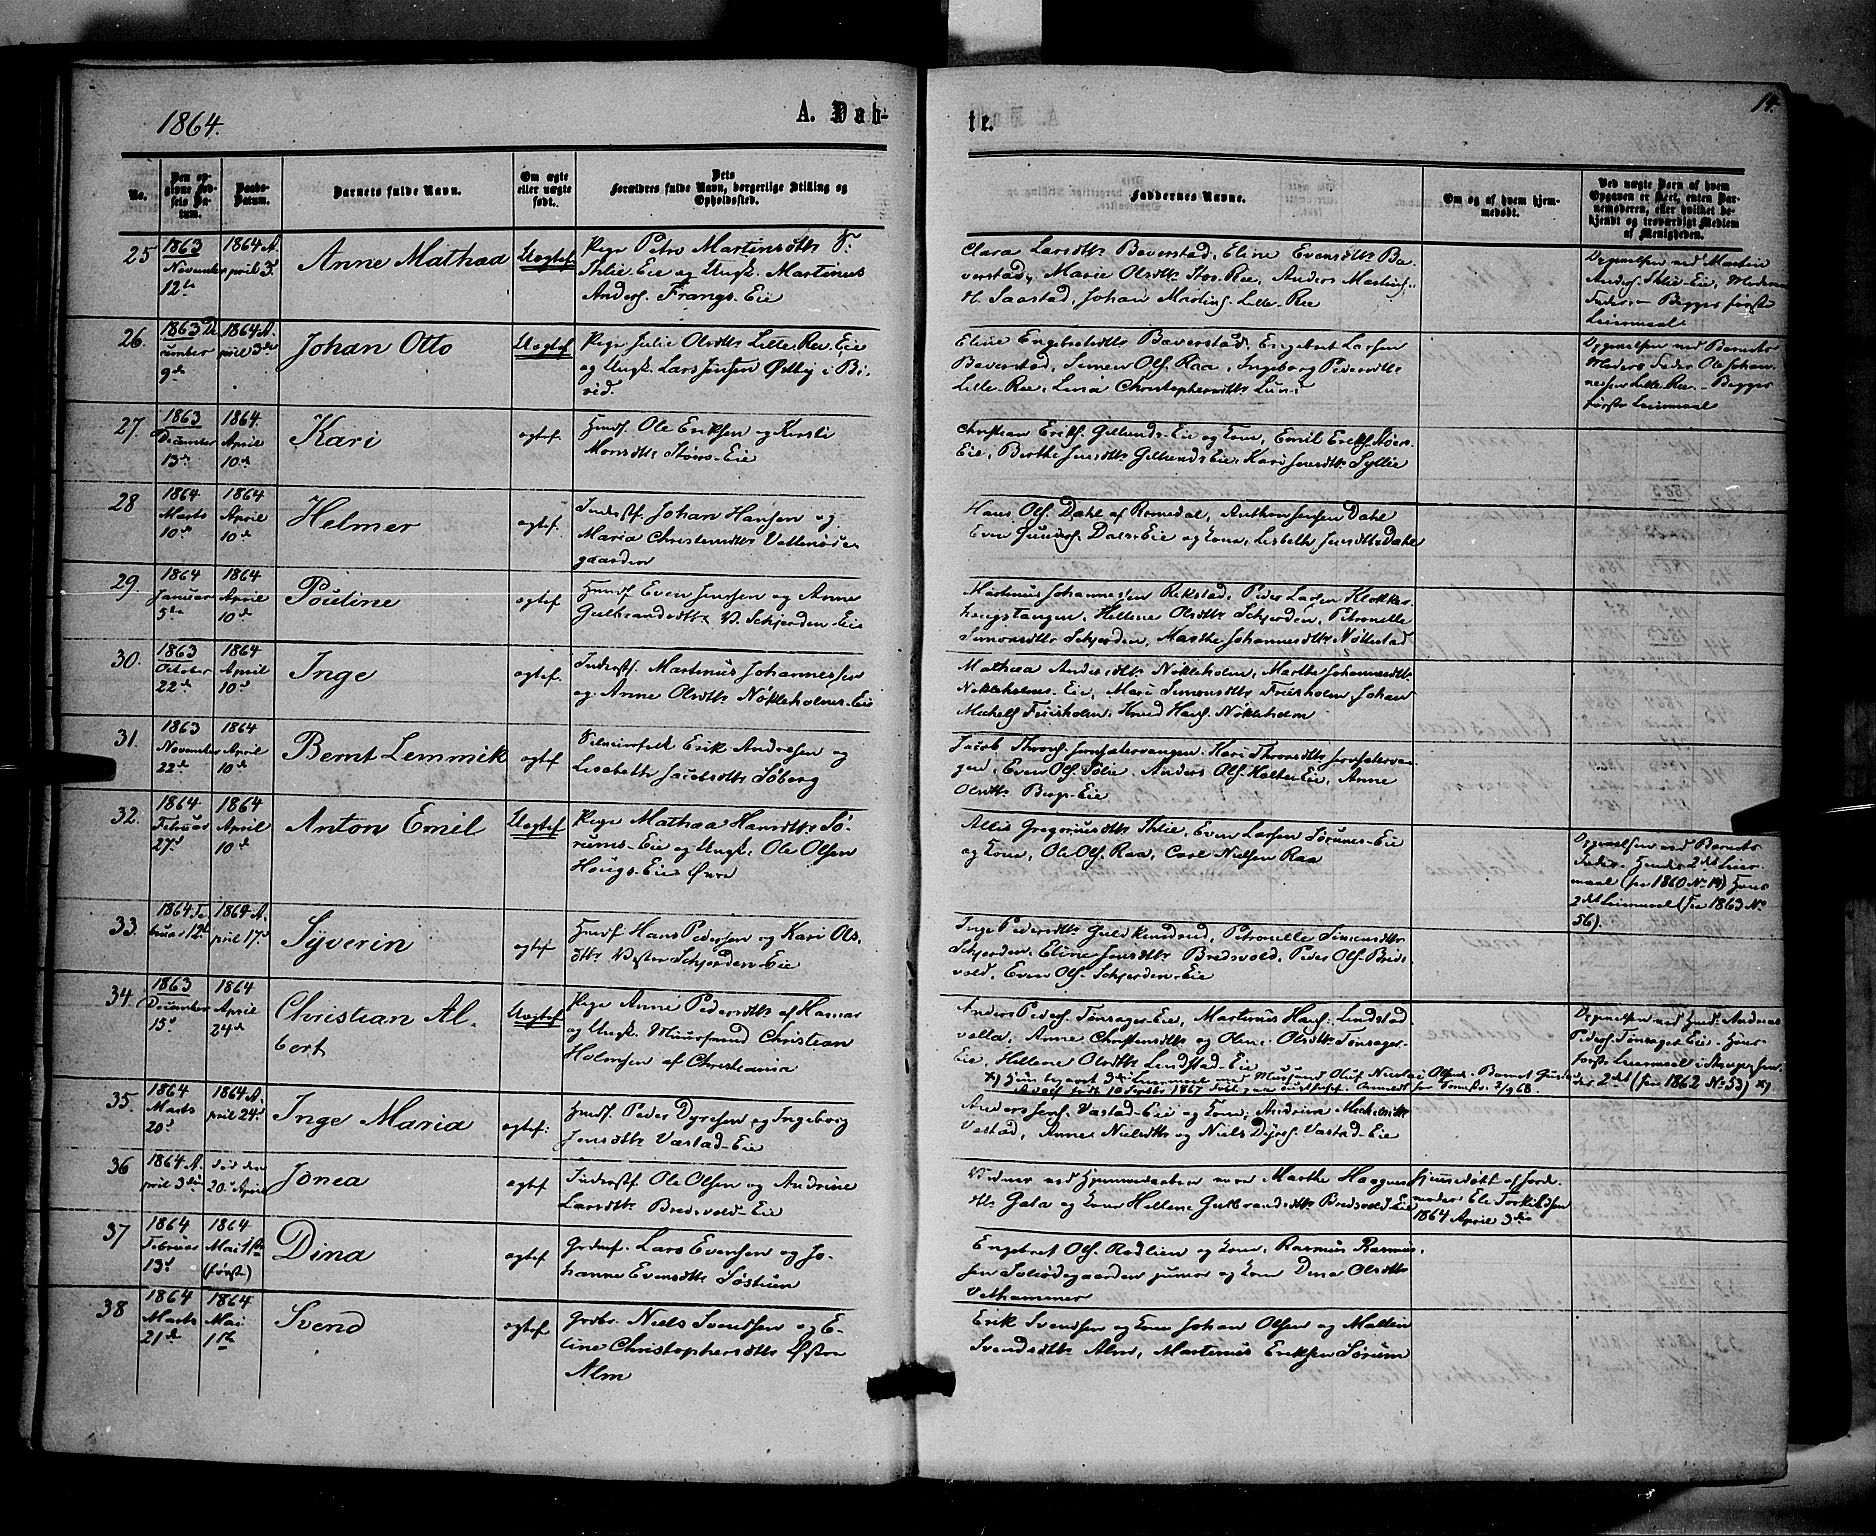 1864.
A. Døb-
te.
14.
No.
Den opgivne Fødsels Datum.
Daabs-Datum.
Barnets fulde Navn.
Om ægte eller uægte født.
Dets Forældres fulde Navn, borgerlige Stilling og Opholdssted.
Faddernes Navne.
Om og af hvem hjemmedøbt.
Ved uægte Barn af hvem Opgaven er skeet, enten Barnemoderen, eller hvilket bekjendt og troværdigt Medlem af Menigheden.
25 1863 November 12te
1864 April 3d
Anne Mathea
Uægtef.
Pige Petro Martinsdtr
Ihlie Eie og Ungk. Martinus
Anders. Frangs-Eie
Clara Larsdtr Baverstad, Eline Evensdtr Ba-
verstad, Marie Olsdtr Stor-Ree, Anders Martins.
N. Saastad, Johan Martins. Lille-Ree
Anders. Ihlie-Eie, Moderens
Fader. Begges første
Leiermaal
26. 1863 December 9de
1864 April 3die
Johan Otto
Uægtef.
Pige Julie Olsdtr Lille-Ree-Eie
og Ungk. Lars Jensen Østby i Bi-
rid.
Eline Engebretsdtr Baverstad, Engebret Larsen
Baverstad, Simen Ols. Raa, Ingeborg Pedersdtr
Lille-Ree, Lina Christophersdtr Lund
Opgivelsen ved Barnets
Moders Fader Ole Johan-
nessen Lille-Ree. Begges
første Leiermaal
27. 1863 December 13de
1864. April 10de
Kari
ægtef.
Huusf. Ole Eriksen og Kersti
Monsdtr Støers-Eie
Christian Eriks. Gillunds-Eie og Kone, Emil Eriks. Støers-
Eie, Berthe Jensdtr Gillunds Eie, Kari Jensdtr Syllie
28 1864 Marts 10de
1864 April 10de
Helmer
ægtef.
Inderstf. Johan Hansen og
Maria Christensdtr Vettenøde-
gaarden
Hans Ols. Dahl af Romedal, Anthon Jensen Dahl
Even Gunders. Dals-Eie og Kone, Lisbeth Jensdtr Dahl
29. 1864 Januar 5te
1864 April 10de
Pouline
ægtef.
Huusf. Even Jensen og Anne
Gulbrandsdtr V. Schjerden-Eie
Martinus Johannesen Rekstad, Peder Larsen Klokker-
haugstangen, Hellene Olsdtr Schjerden, Petronelle
Simonsdtr Schjerden, Marthe Johannesdtr Nøttestad
30. 1863 October 22de
1864 April 10de
Inge
ægtef.
Inderstf. Martinus Johannessen
og Anne Olsdtr Nøkleholms-Eie
Mathea Andersdtr Nøkleholm, Marthe Johannesdtr
Nøkleholms-Eie, Mari Simonsdtr Friisholm, Johan
Michels. Friisholm, Knud Hans. Nøkleholm
31. 1863 November 22de
1864 April 10de
Bernt Lemmik
ægtef.
Erik Andresen og
Lisabeth Jacobsdtr Søberg
Jacob Throns. Jonsætervangen, Kari Thronsdtr Jonsætervan-
gen, Even Ols. Solie, Anders Ols. Holter-Eie, Anne
Olsdtr Bergs-Eie
32. 1864 Februar 27de
1864 April 10de
Anton Emil
Uægtef.
Pige Mathea Hansdtr Sø-
rums-Eie og Ungk. Ole Olsen
Hougs-Eie Øvre
Allis Gregoriusdtr Ihlie, Even Larsen Sørums-Eie
og Kone, Ole Ols. Raa, Carl Nielsen Raa
Opgivelsen ved Barnets
Fader. Hendes 2det Leier-
maal (see 1860 No 14) Hans
2det Leiermaal (see 1863 No
56).
33. 1864 Februar 12te
1864 April 17de
Syverin
ægtef.
Huusf. Hans Pedersen og Kari Ols-
dtr Vestre Schjerden-Eie
Inge Pedersdtr Guldkinsrud, Petronelle Simensdtr
Schjerden, Eline Jensdtr Bredsvold, Peder Ols. Breds-
vold, Even Ols. Schjerden-Eie
34. 1863 December 15de
1864 April 24de
Christian Al-
bert
Uægtef.
Pige Anne Pedersdtr af Hamar
og Ungk. Muursvend Christian
Holmsen af Christiania
Anders Peders. Tønsager-Eie, Martinus Hans. Lundstad-
vollen, Anne Christensdtr og Oline Olsdtr Tønsager-
Eie, Hellene Olsdtr Lundstad-Eie
Opgivelsen ved Huusf. Andreas
Peders. Tønsager-Eie. Hans
første Leiermaal, Anne
des 2det (see 1862 No 53) x)
35. 1864 Marts 20de
1864 April 24de
Inge Maria
ægtef.
Huusf. Peder Dyresen og Ingeborg
Jensdtr Vaestad-Eie
Anders Jens. Vastad-Eie og Kone, Andrine Michelsdtr
Vastad, Anne Nielsdtr og Niels Dyres. Vastad-Eie
36 1864 April 3die
død den 20. April
Jonea
ægtef.
Inderstf. Ole Olsen og Andrine
Larsdtr Bredsvold-Eie
Vidner ved Hjemmedaaben vare Marthe Haagens-
dtr Gata og Kone Hellene Gulbrandsdtr Bredsvold-Eie
Hjemmedøbt af Jorde-
moder Eli Torkildsen
1864 April 3die
37 1864 Februar 13de
1864 Mai 1ste (første)
Dina
ægtef.
Grdmf. Lars Evensen og Jo-
hanne Evensdtr Søstuen
Engebret Ols. Rodlien og Kone, Rasmus Rasmus-
sen Solødegaarden junior og Kone Dina Olsdtr
Vethammer
38 1864 Marts 21de
1864 Mai 1ste
Svend
ægtef.
Grdbr. Niels Svendsen og E-
line Christophersdtr Østre
Alm
Erik Svendsen og Kone Johan Olsen og Mallen
Svendsdtr Alm, Martinus Eriksen Sørum